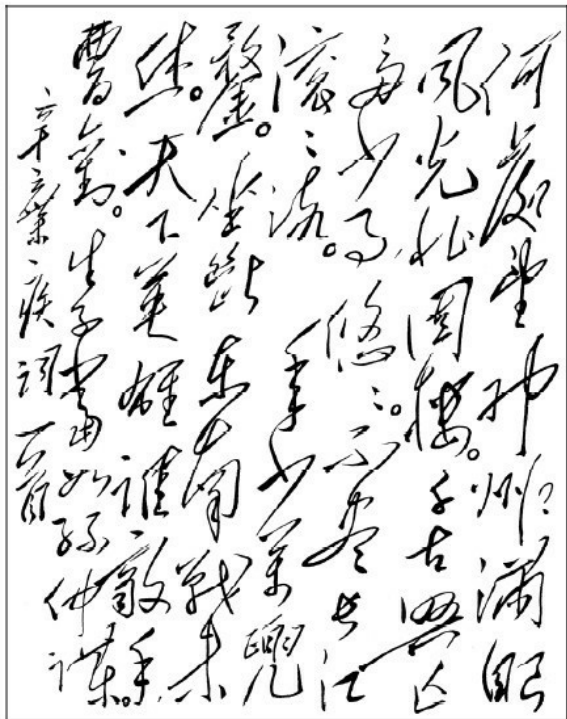 何處望神州滿眼
風光北固樓。千古興亡
多少事悠々。不盡長江
滚々流。年少萬兜
鍪。坐斷東南戰未
休。天下英雄誰敵手。
曹劉。生子當如孫仲謀。
辛棄疾詞一首